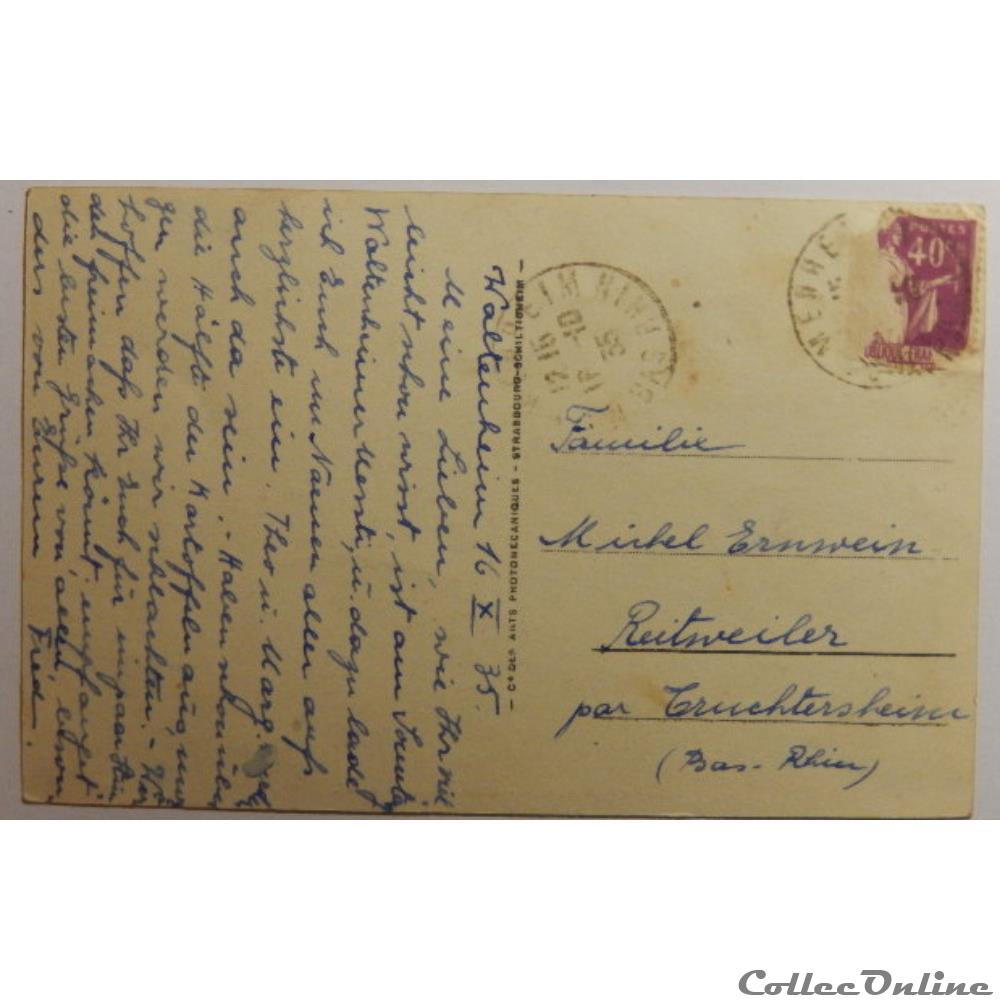 Waltenheim 16 X 35.
Meine Lieben, wie Ihr viel
leicht schon wisst, ist am Sonntag
Waltenheimer Messti, u. dazu ladet
ich Euch im Namen aller aufs
herzlichste ein. Theo u. Marg.
auch da sein. - Haben schon
die Hälfte der Kartoffeln aus,
gen werden wir schlachten. -
hoffen dass Ihr Euch für ein paar
frei machen könnt, empfanget
die besten Grüsse von allen,
ders von Eurem Fred.
- Cie DES ARTS PHOTOMECANIQUES - STRASBOURG-SCHILTIGHEIM -
BAS RHIN
12 15
16 - 10
35
POSTES
40c
Familie
Michel Ernwein
Reitweiler
par Truchtersheim
(Bas-Rhin)
CollecOnline